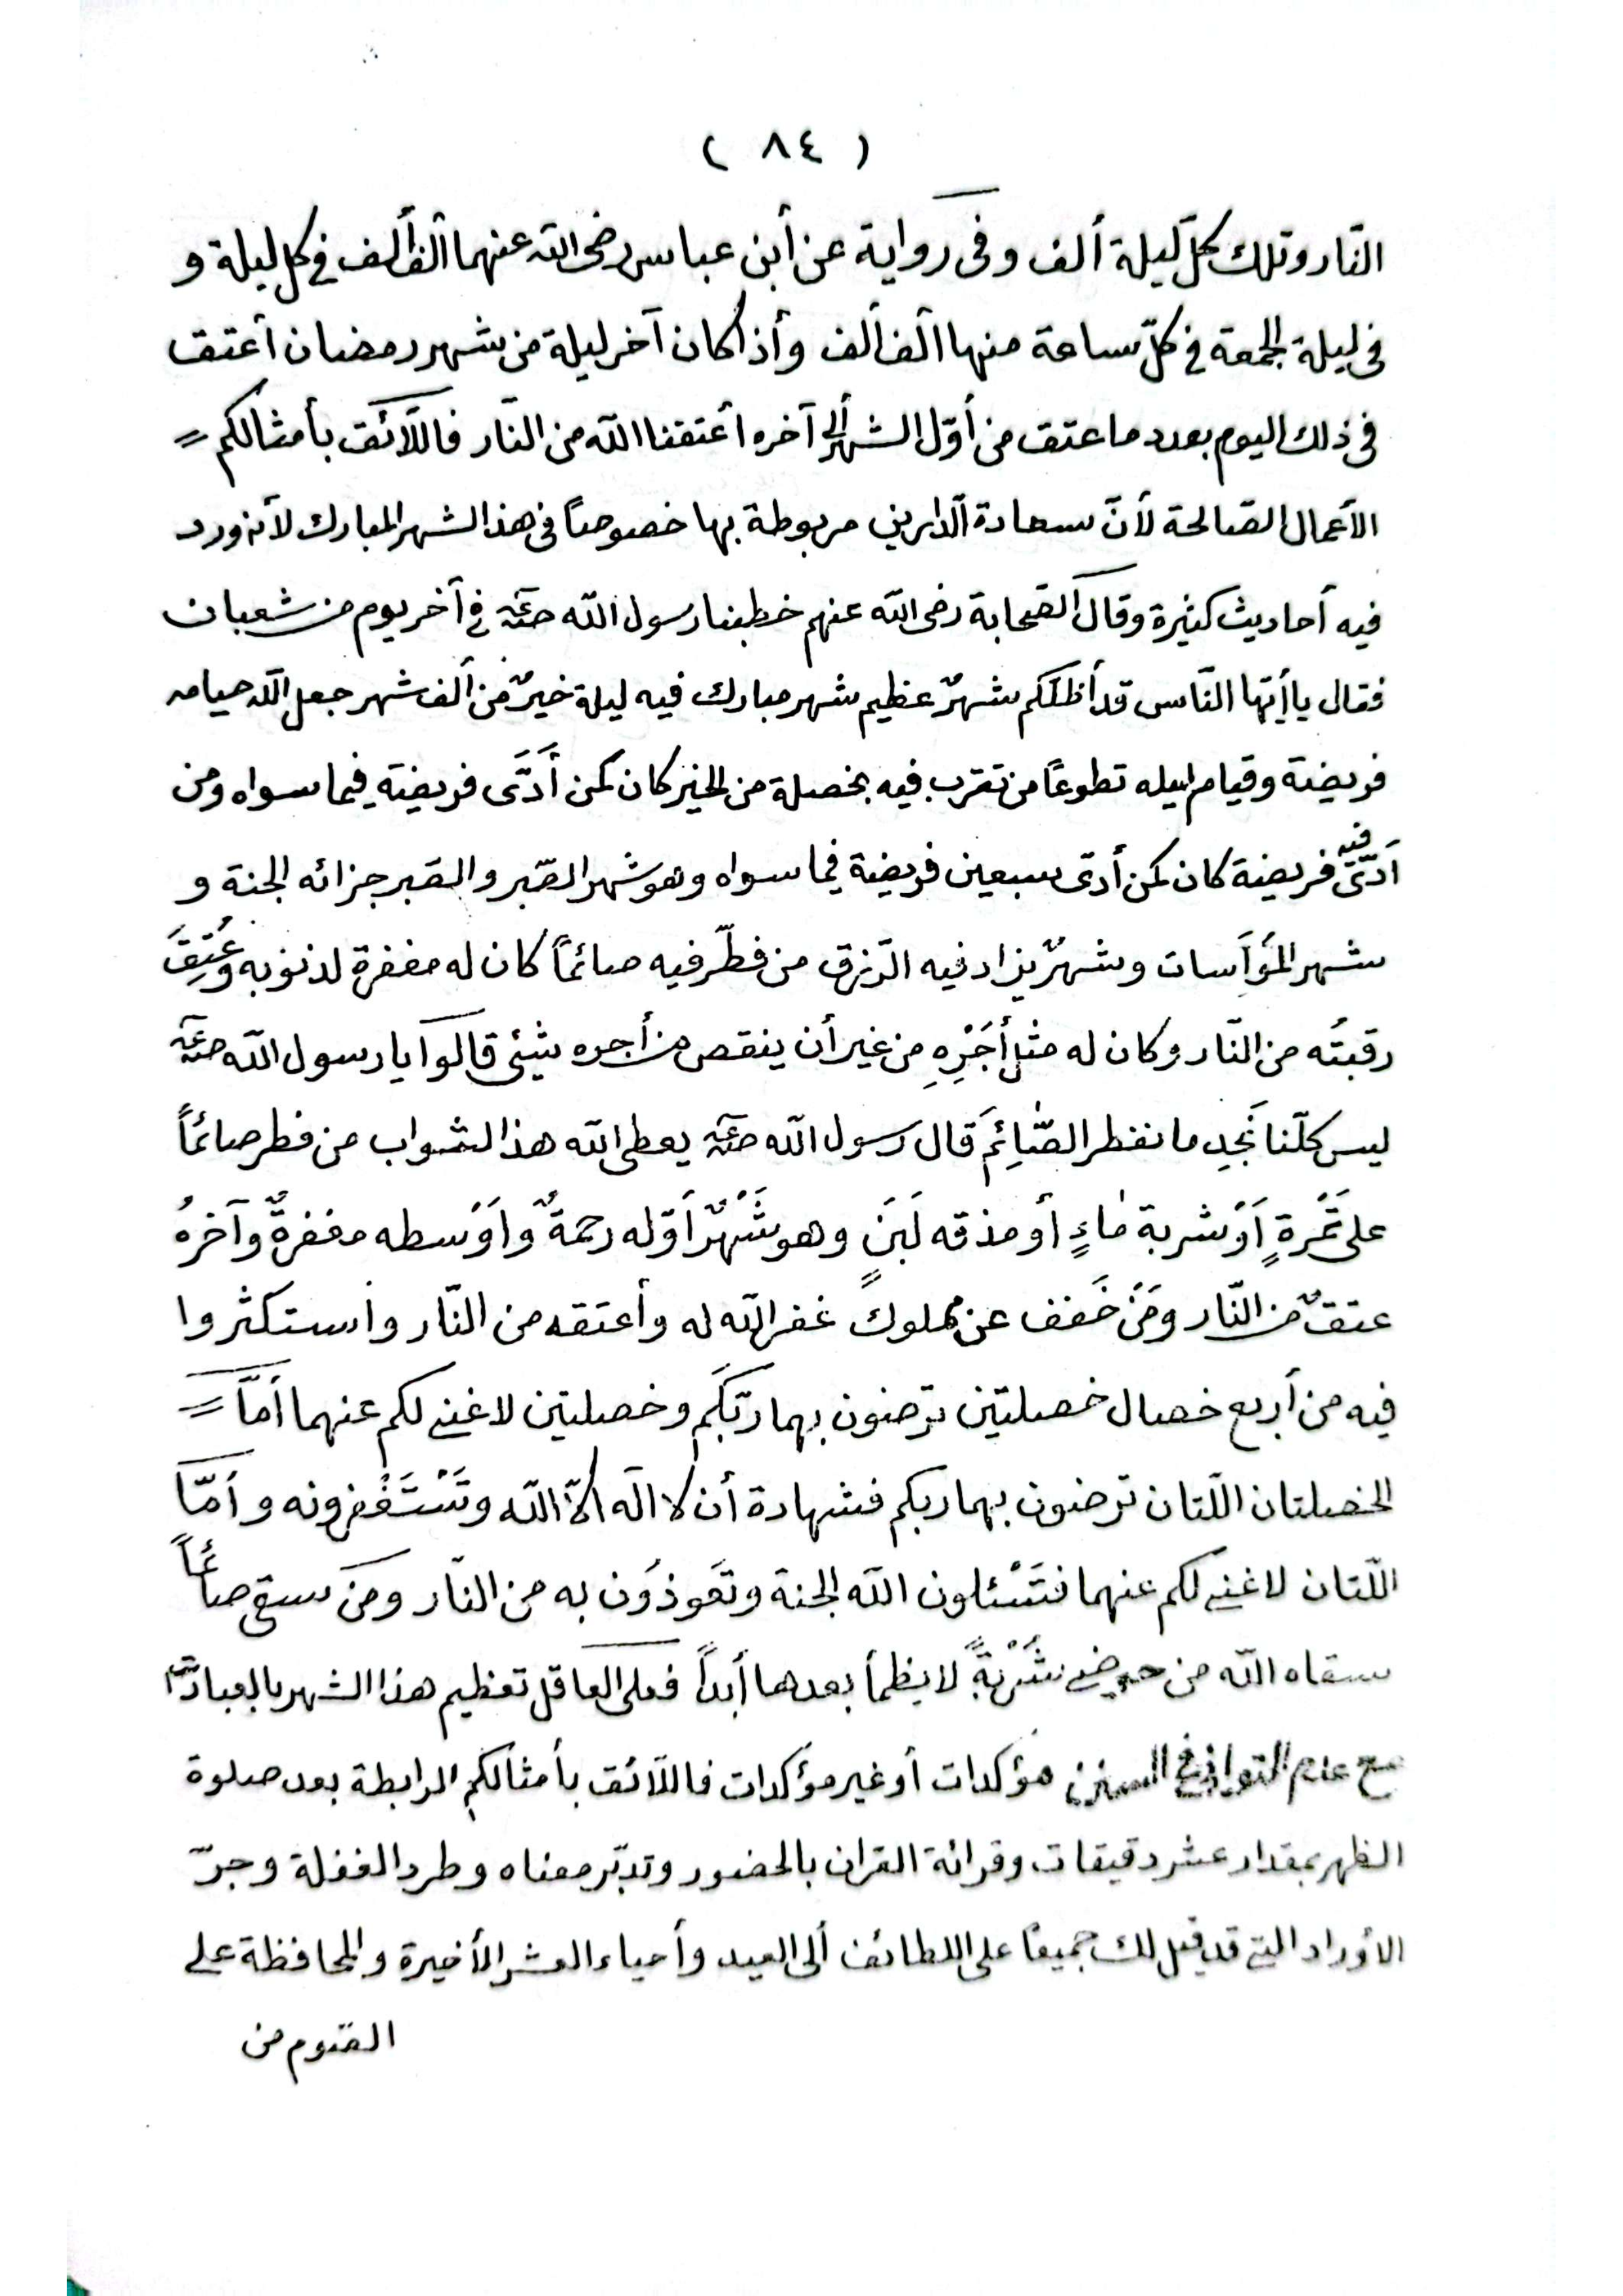 ( ٨٤ )
النّار وتلك كلّ ليلة ألف وفى رواية عن أبن عباس رضى الله عنهما ألف ألف فى كل ليلة و
فى ليلة الجمعة فى كلّ ساعة منها ألف ألف وأذا كان آخر ليلة من شهر رمضان أعتق
فى ذلك اليوم بعدد ما عتق من أوّل الشهر ألى آخره أعتقنا الله من النّار فاللّائق بأمثالكم
الأعمال الصّالحة لأنّ سعادة الدّارين مربوطة بها خصوصاً فى هذ الشهر المبارك لأنه ورد
فيه أحاديث كثيرة وقال الصّحابة رضى الله عنهم خطبنا رسول الله صعم فى آخر يوم من شعبان
فقال يا أيّها النّاس قد أظلّكم شهرٌ عظيم شهر مبارك فيه ليلة خيرٌ من ألف شهر جعل الله صيامه
فريضة وقيام ليله تطوعاً من تقرب فيه بخصلة من الخير كان كمن أَدَّى فريضة فيما سواه ومن
أدّى فيه فريضة كان كمن أدّى سبعين فريضة فيما سواه وهو شهر الصّبر والصّبر جزائه الجنة و
شهر المُوَآسات وشهرٌ يزاد فيه الرّزق من فطّر فيه صائماً كان له مغفرة لذنوبه وعُتِقَ
رقبتُه من النّار وكان له مثل أَجْرِهِ من غير أن ينقص من أجره شيئى قالوا يا رسول الله صعم
ليس كلّنا نَجِد ما نفطر الصّائِمَ قال رسول الله صعم يعطى الله هذ الثواب من فطر صائماً
على تَمْرةٍ أَوْ شربة مٰاءٍ أو مذقه لَبَنٍ وهو شَهْرٌ أوّله رحمةٌ وأَوْسطه مغفرةٌ وآخرهُ
عتقٌ من النّار ومَنْ خَفف عن مملوكٍ غفر الله له وأعتقه من النّار وأستكثروا
فيه من أربع خصال خصلتين ترضون بهما ربّكَم وخصلتين لا غنى لكم عنهما أمّا
الخصلتان اللّتان ترضون بهما ربكم فشهادة أن لا اله الّا الله وتَسْتَغْفِرونه وأمّا
اللّتان لا غنى لكم عنهما فتَسْئلون الله الجنة وتَعَوذوُن به من النّار ومَنْ سقى صائماً
سقاه الله من حوضى شُرْبةً لا يظمأ بعدها أبداً فعلى العاقل تعظيم هذا الشهر بالعبادات
مع عدم التوانى فى السنن مؤكدات أو غير مؤكدات فاللّائق بأمثالكم الرابطة بعد صلوة
الظهر بمقدار عشر دقيقات وقرائة القران بالحضور وتدبّر معناه وطرد الغفلة وجرّ
الأوراد التى قد قيل لك جميعًا على اللطائف ألى العيد وأحياء العشر الأخيرة والمحافظة على
الصّوم من